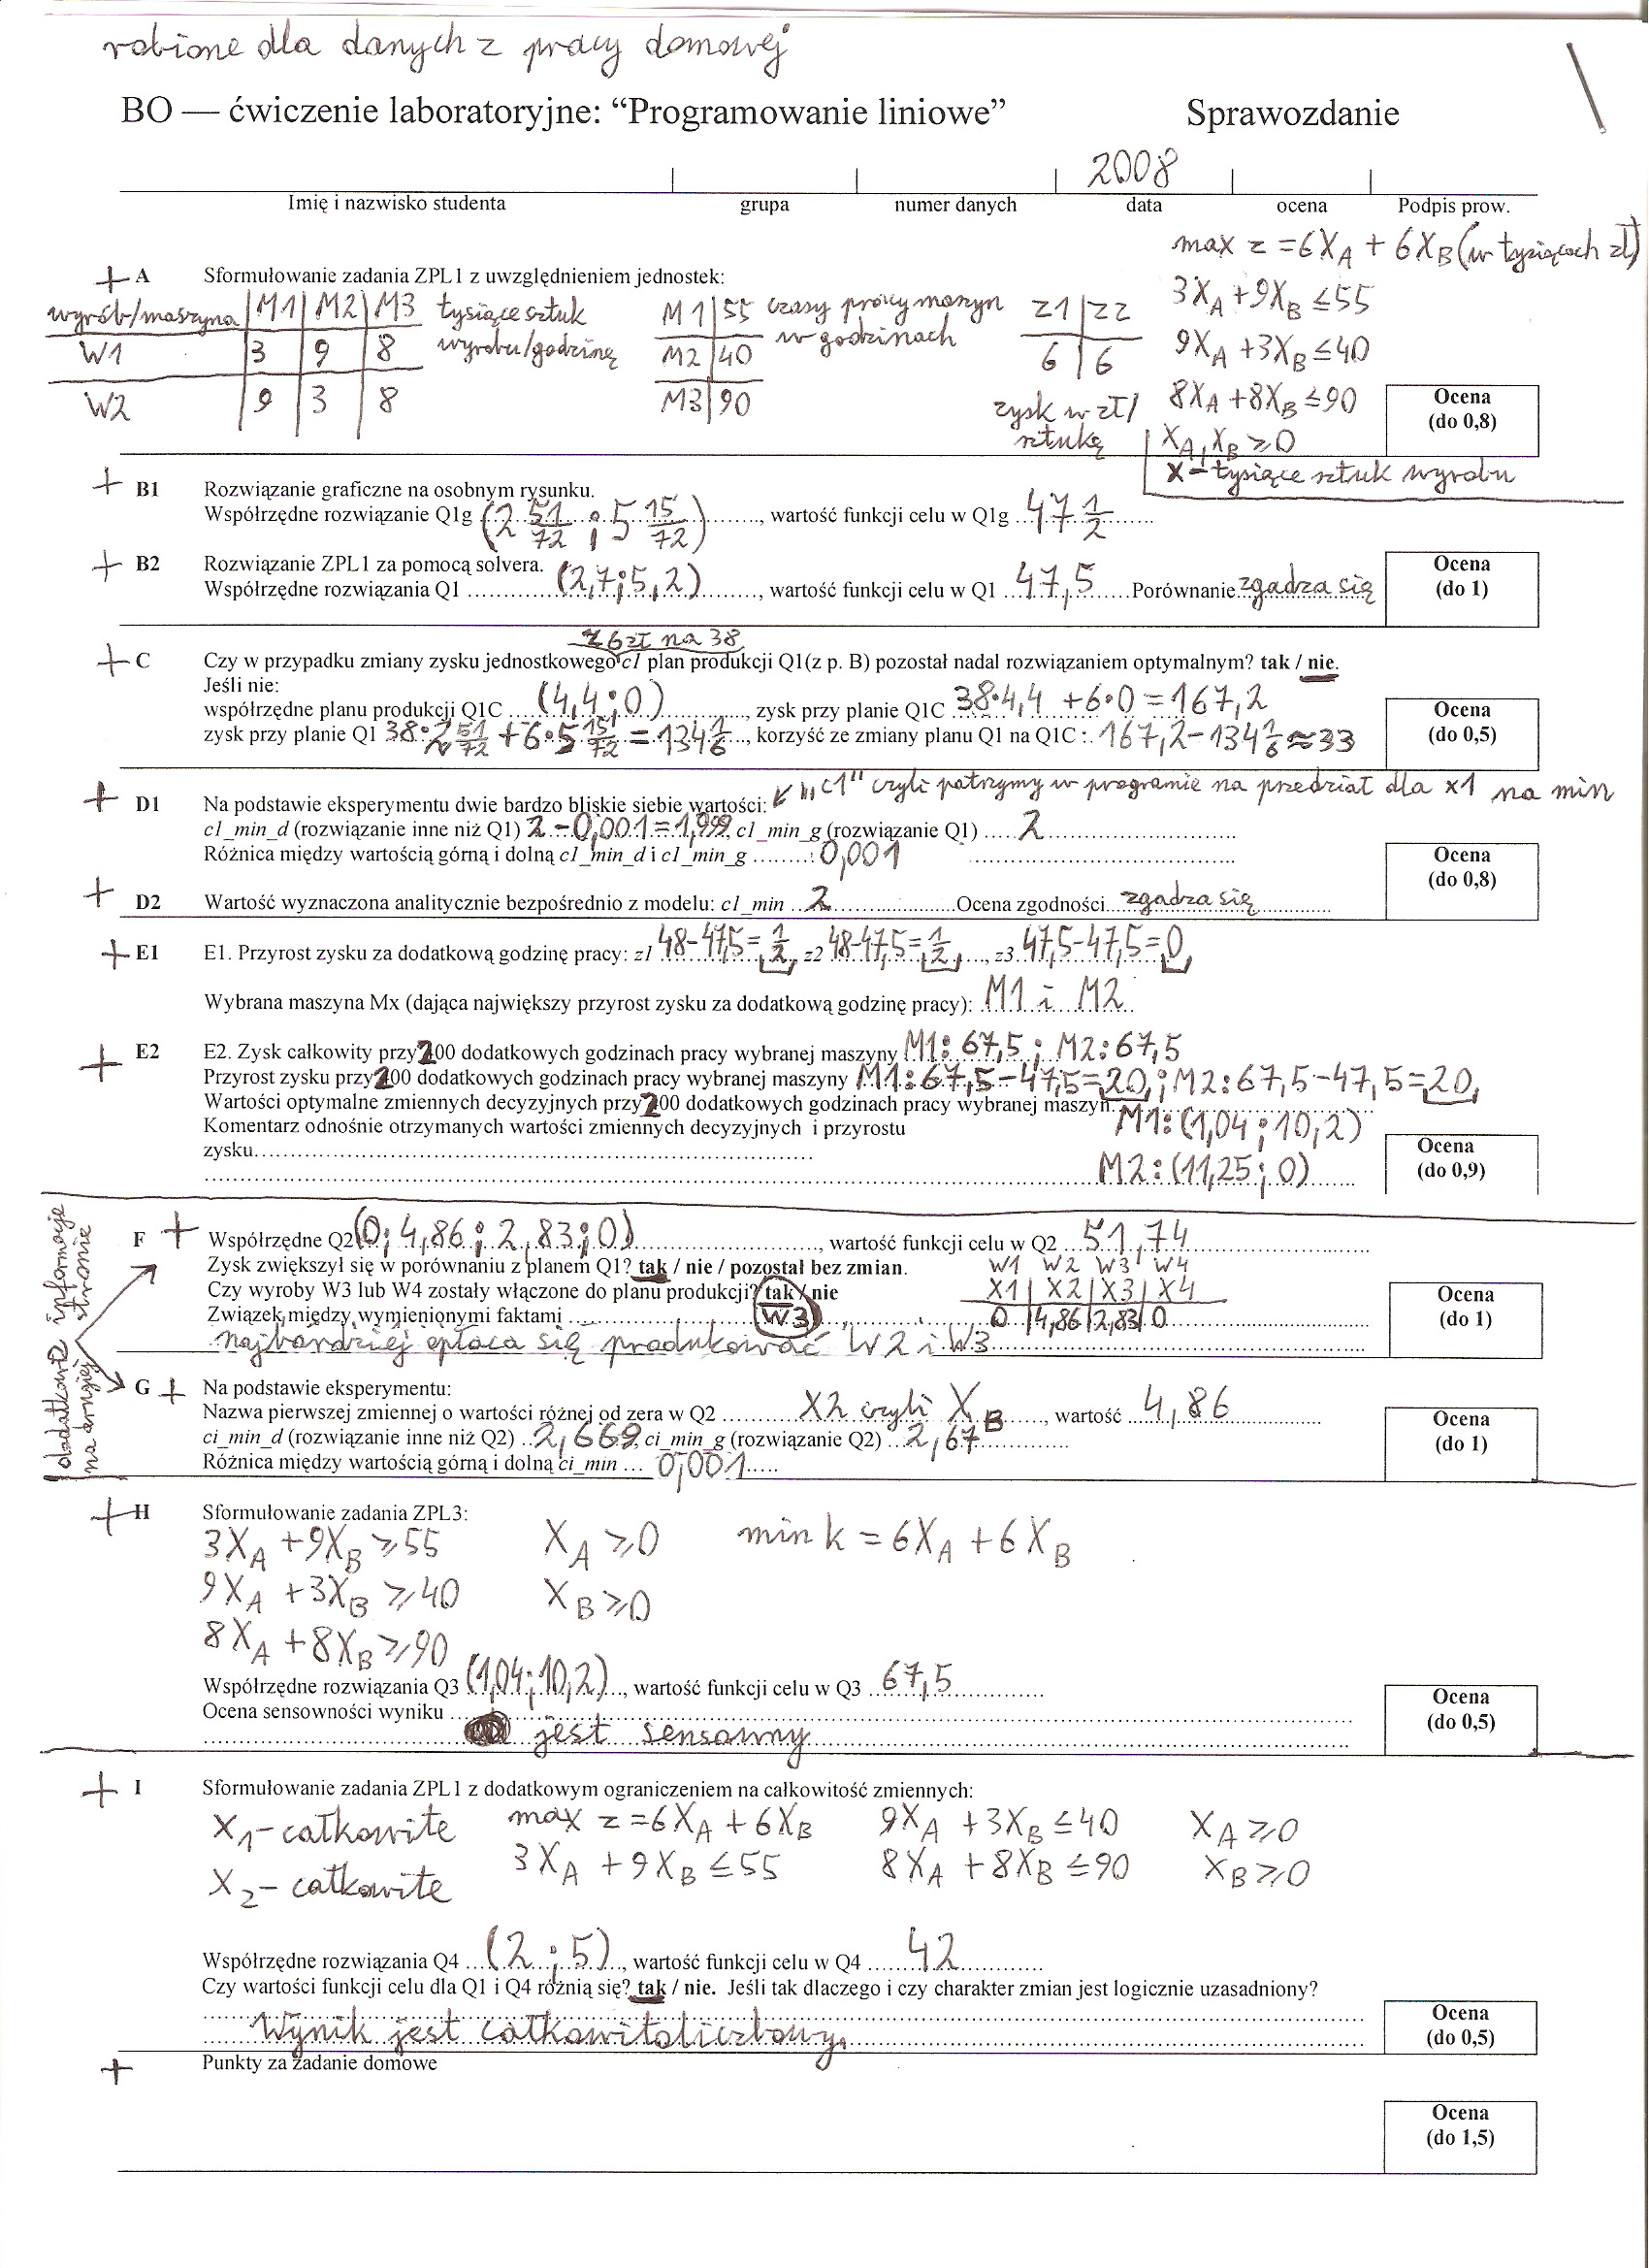 robione dla danych z pracy domowej
BO — ćwiczenie laboratoryjne: “Programowanie liniowe” Sprawozdanie
2008
Imię i nazwisko studenta grupa numer danych data ocena Podpis prow.
max z = 6XA + 6XB (w tysiącach zł)
+ A Sformułowanie zadania ZPL1 z uwzględnieniem jednostek:
wyrób/maszyna M1 M2 M3 tysiące sztuk wyrobu/godzinę
W1 3 9 8
W2 9 3 8
M1 55 czasy pracy maszyn w godzinach
M2 40
M3 90
Z1 Z2
6 6
zysk w zł/sztukę
3XA + 9XB ≤ 55
9XA + 3XB ≤ 40
8XA + 8XB ≤ 90
XA, XB ≥ 0
X – tysiące sztuk wyrobu
Ocena
(do 0,8)
+ B1 Rozwiązanie graficzne na osobnym rysunku.
Współrzędne rozwiązanie Q1g (2 51/72 ; 5 15/72), wartość funkcji celu w Q1g 47 1/2
+ B2 Rozwiązanie ZPL1 za pomocą solvera.
Współrzędne rozwiązania Q1 (2,7; 5,2), wartość funkcji celu w Q1 47,5 Porównanie zgadza się
Ocena
(do 1)
z 6zł na 38
+ C Czy w przypadku zmiany zysku jednostkowego c1 plan produkcji Q1(z p. B) pozostał nadal rozwiązaniem optymalnym? tak / nie.
Jeśli nie:
współrzędne planu produkcji Q1C (4,4; 0), zysk przy planie Q1C 38·4,4 + 6·0 = 167,2
zysk przy planie Q1 38·2 51/72 + 6·5 15/72 = 134 1/6, korzyść ze zmiany planu Q1 na Q1C: 167,2 - 134 1/6 ≈ 33
Ocena
(do 0,5)
"c1" czyli patrzymy w programie na przedział dla x1 na min
+ D1 Na podstawie eksperymentu dwie bardzo bliskie siebie wartości:
c1_min_d (rozwiązanie inne niż Q1) 2 - 0,001 = 1,999, c1_min_g (rozwiązanie Q1) 2
Różnica między wartością górną i dolną c1_min_d i c1_min_g 0,001
+ D2 Wartość wyznaczona analitycznie bezpośrednio z modelu: c1_min 2 Ocena zgodności zgadza się
Ocena
(do 0,8)
+ E1 E1. Przyrost zysku za dodatkową godzinę pracy: z1 48-47,5 = 1/2, z2 48-47,5 = 1/2, z3 47,5-47,5 = 0
Wybrana maszyna Mx (dająca największy przyrost zysku za dodatkową godzinę pracy): M1 i M2
+ E2 E2. Zysk całkowity przy 200 dodatkowych godzinach pracy wybranej maszyny M1: 67,5 ; M2: 67,5
Przyrost zysku przy 200 dodatkowych godzinach pracy wybranej maszyny M1: 67,5-47,5 = 20, ; M2: 67,5-47,5 = 20,
Wartości optymalne zmiennych decyzyjnych przy 200 dodatkowych godzinach pracy wybranej maszyn. M1: (1,04 ; 10,2)
Komentarz odnośnie otrzymanych wartości zmiennych decyzyjnych i przyrostu
zysku
M2: (11,25; 0)
Ocena
(do 0,9)
dodatkowe informacje na drugiej stronie
F + Współrzędne Q2 (0; 4,86; 2,83; 0), wartość funkcji celu w Q2 51,74
Zysk zwiększył się w porównaniu z planem Q1? tak / nie / pozostał bez zmian. W1 W2 W3 W4
Czy wyroby W3 lub W4 zostały włączone do planu produkcji? tak / nie X1 X2 X3 X4
Związek między wymienionymi faktami W3 0 4,86 2,83 0
najbardziej opłaca się produkować W2 i W3
Ocena
(do 1)
G + Na podstawie eksperymentu:
Nazwa pierwszej zmiennej o wartości różnej od zera w Q2 X2 czyli XB, wartość 4,86
ci_min_d (rozwiązanie inne niż Q2) 2,669, ci_min_g (rozwiązanie Q2) 2,67
Różnica między wartością górną i dolną ci_min ... 0,001
Ocena
(do 1)
+ H Sformułowanie zadania ZPL3:
3XA + 9XB ≥ 55 XA ≥ 0 min k = 6XA + 6XB
9XA + 3XB ≥ 40 XB ≥ 0
8XA + 8XB ≥ 90
Współrzędne rozwiązania Q3 (1,04; 10,2), wartość funkcji celu w Q3 67,5
Ocena sensowności wyniku
jest sensowny
Ocena
(do 0,5)
+ I Sformułowanie zadania ZPL1 z dodatkowym ograniczeniem na całkowitość zmiennych:
X1 – całkowite max z = 6XA + 6XB 9XA + 3XB ≤ 40 XA ≥ 0
X2 – całkowite 3XA + 9XB ≤ 55 8XA + 8XB ≤ 90 XB ≥ 0
Współrzędne rozwiązania Q4 (2 ; 5), wartość funkcji celu w Q4 42
Czy wartości funkcji celu dla Q1 i Q4 różnią się? tak / nie. Jeśli tak dlaczego i czy charakter zmian jest logicznie uzasadniony?
Wynik jest całkowitoliczbowy.
Ocena
(do 0,5)
+ Punkty za zadanie domowe
Ocena
(do 1,5)